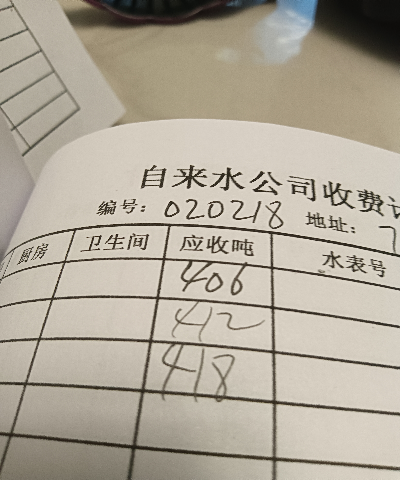 自来水公司收费
编号：020218 地址：7
厨房 卫生间 应收吨 水表号
406
412
418